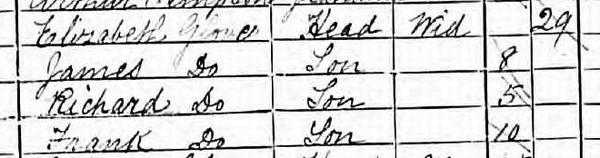 Elizabeth Glover Head Wid 29
James Do Son 8
Richard Do Son 5
Frank Do Son 10